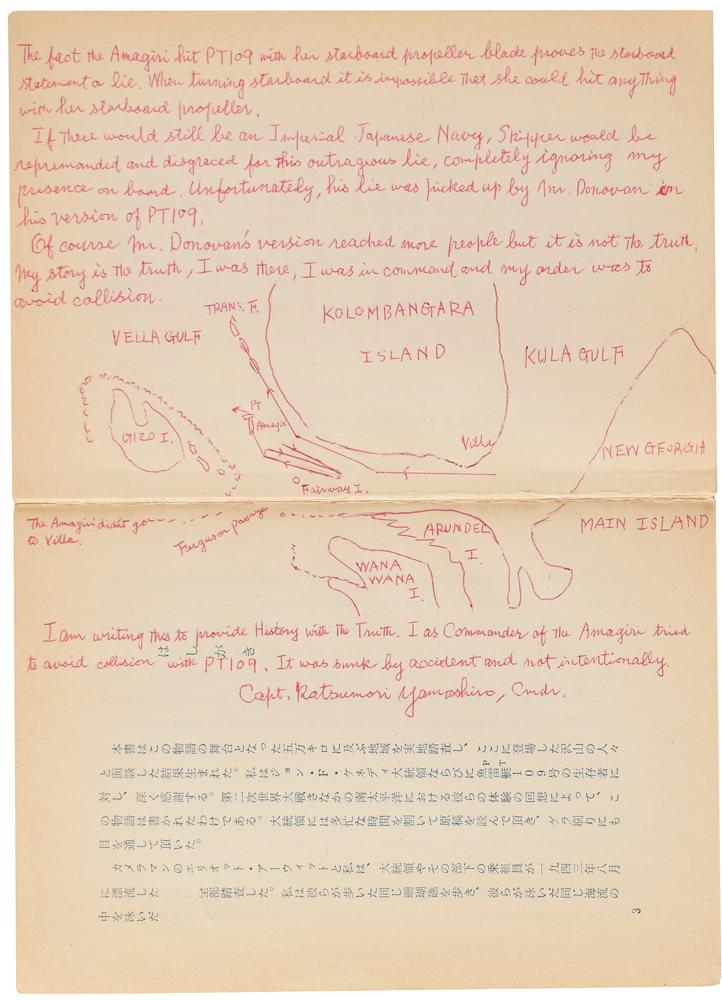 The fact the Amagiri hit PT109 with her starboard propeller blade proves the starboard
statement a lie. When turning starboard it is impossible that she could hit anything
with her starboard propeller.
If there would still be an Imperial Japanese Navy, Skipper would be
repremanded and disgraced for this outrageous lie, completely ignoring my
presence on board. Unfortunately, his lie was picked up by Mr. Donovan in
his version of PT109.
Of course Mr. Donovan's version reached more people but it is not the truth,
My story is the truth, I was there, I was in command and my order was to
avoid collision.
TRANS. F.
KOLOMBANGARA
ISLAND
VELLA GULF
KULA GULF
PT
Amagiri
GIZO I.
Villa
NEW GEORGIA
Fairway I.
The Amagiri didn't go
to Villa.
Ferguson passage
ARUNDEL
I.
MAIN ISLAND
WANA
WANA
I.
I am writing this to provide History with the Truth. I as Commander of the Amagiri tried
はしがき
to avoid collision with PT109. It was sunk by accident and not intentionally.
Capt. Katsumori Yamashiro, Cmdr.
本書はこの物語の舞台となった五万キロに及ぶ地域を実地踏査し、ここに登場した沢山の人々
PT
と面談した結果生まれた。私はジョン・F・ケネディ大統領ならびに魚雷艇109号の生存者に
対し、深く感謝する。第二次世界大戦さなかの南太平洋における彼らの体験の回想によって、こ
の物語は書かれたわけである。大統領には多忙な時間を割いて原稿を読んで頂き、ゲラ刷りにも
目を通して頂いた。
カメラマンのエリオット・アーウィットと私は、大統領やその部下の乗組員が一九四三年八月
に漂流した 全部踏査した。私は彼らが歩いた同じ珊瑚礁を歩き、彼らが泳いだ同じ海流の
中を泳いだ
3